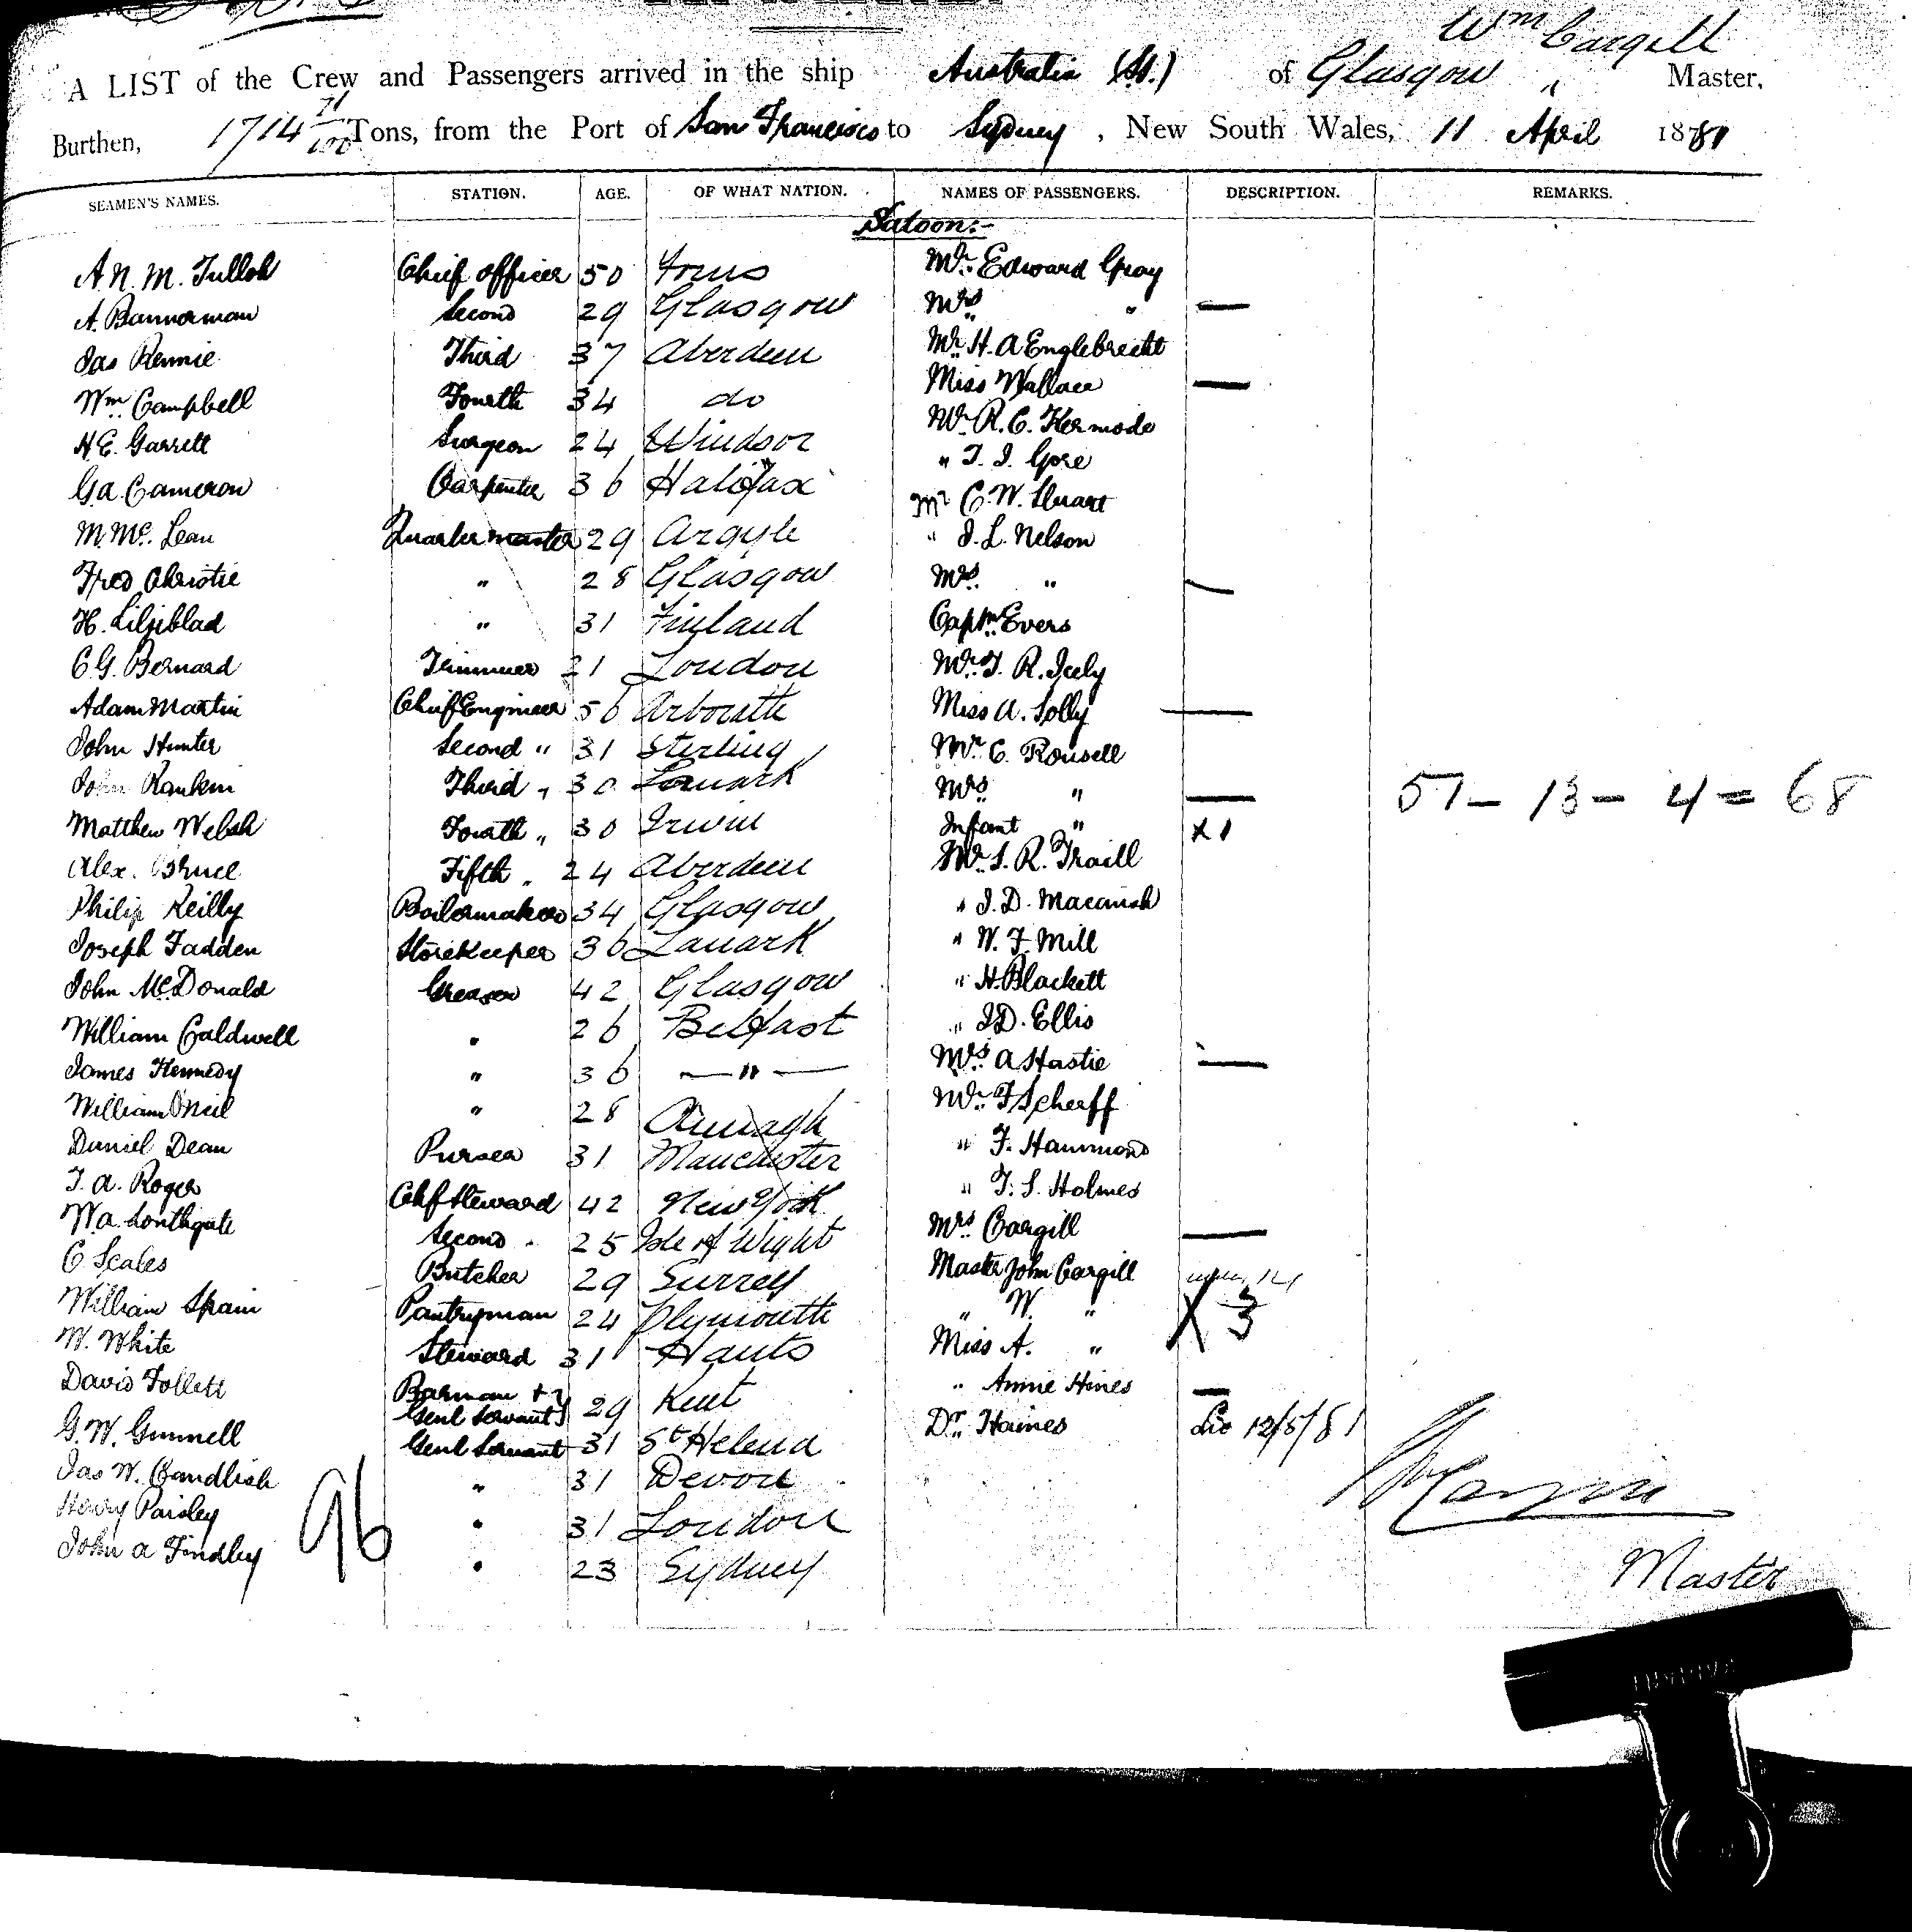 Wm Cargill
A LIST of the Crew and Passengers arrived in the ship Australia (St.) of Glasgow " Master,
Burthen, 1714 71/100 Tons, from the Port of San Francisco to Sydney, New South Wales, 11 April 1881
SEAMEN'S NAMES. STATION. AGE. OF WHAT NATION. NAMES OF PASSENGERS. DESCRIPTION. REMARKS.
Saloon:-
A. N. M. Tulloh Chief Officer 50 Mr. Edward Gray
A. Bannerman Second 29 Glasgow Mrs. " —
Jas Rennie Third 37 Aberdeen Mr. H. A Englebrecht
Wm. Campbell Fourth 34 do Miss Wallace —
H. E. Garrett Surgeon 24 Windsor Mr. R. C. Kermode
G. A. Cameron Carpenter 36 Halifax " T. J. Gore
M. Mc. Lean Quarter master 29 Argyle Mr C. W. Stuart
Fred Christie " 28 Glasgow " J. L. Nelson
H. Liljiblad " 31 Finland Mrs. " —
C. G. Bernard Trimmer 21 London Captn. Evers
Adam Martin Chief Engineer 56 Arborath Mr. T. R. Icely
John Hunter Second " 31 Sterling Miss A. Solly —
John Rankin Third " 30 Lanark Mr. C. Rousell
Matthew Welsh Fourth " 30 Irwin Mrs " —
Alex. Bruce Fifth " 24 Aberdeen Infant " x 1
57 - 13 - 4 = 68
Philip Reilly Boilermaker 34 Glasgow Mr. S. R. Traill
Joseph Fadden Storekeeper 36 Lanark " J. D. Macansh
John McDonald Greaser 42 Glasgow " W. F. Mill
William Caldwell " 26 Belfast " H. Blackett
James Kennedy " 36 — " — " J D. Ellis
William O'Neil " 28 Armagh Mrs. A Hastie —
Daniel Dean Purser 31 Manchester Mr. F Scherff
T. A. Roger Chf Steward 42 New York " F. Hammond
W. A. Southgate Second " 25 Isle of Wight " T. S. Holmes
C Scales Butcher 29 Surrey Mrs. Cargill —
William Spain Pantryman 24 Plymouth Master John Cargill
W. White Steward 31 Hants " W. " X 3
David Follett Barman + Genl Servant 29 Kent Miss A. "
G. W. Gunnell Genl Servant 31 St Helena " Annie Hines —
Jas W. Candlish " 31 Devon Dr. Haines 12/5/81
Henry Paisley " 31 London
John A Findley " 23 Sydney
96
Master